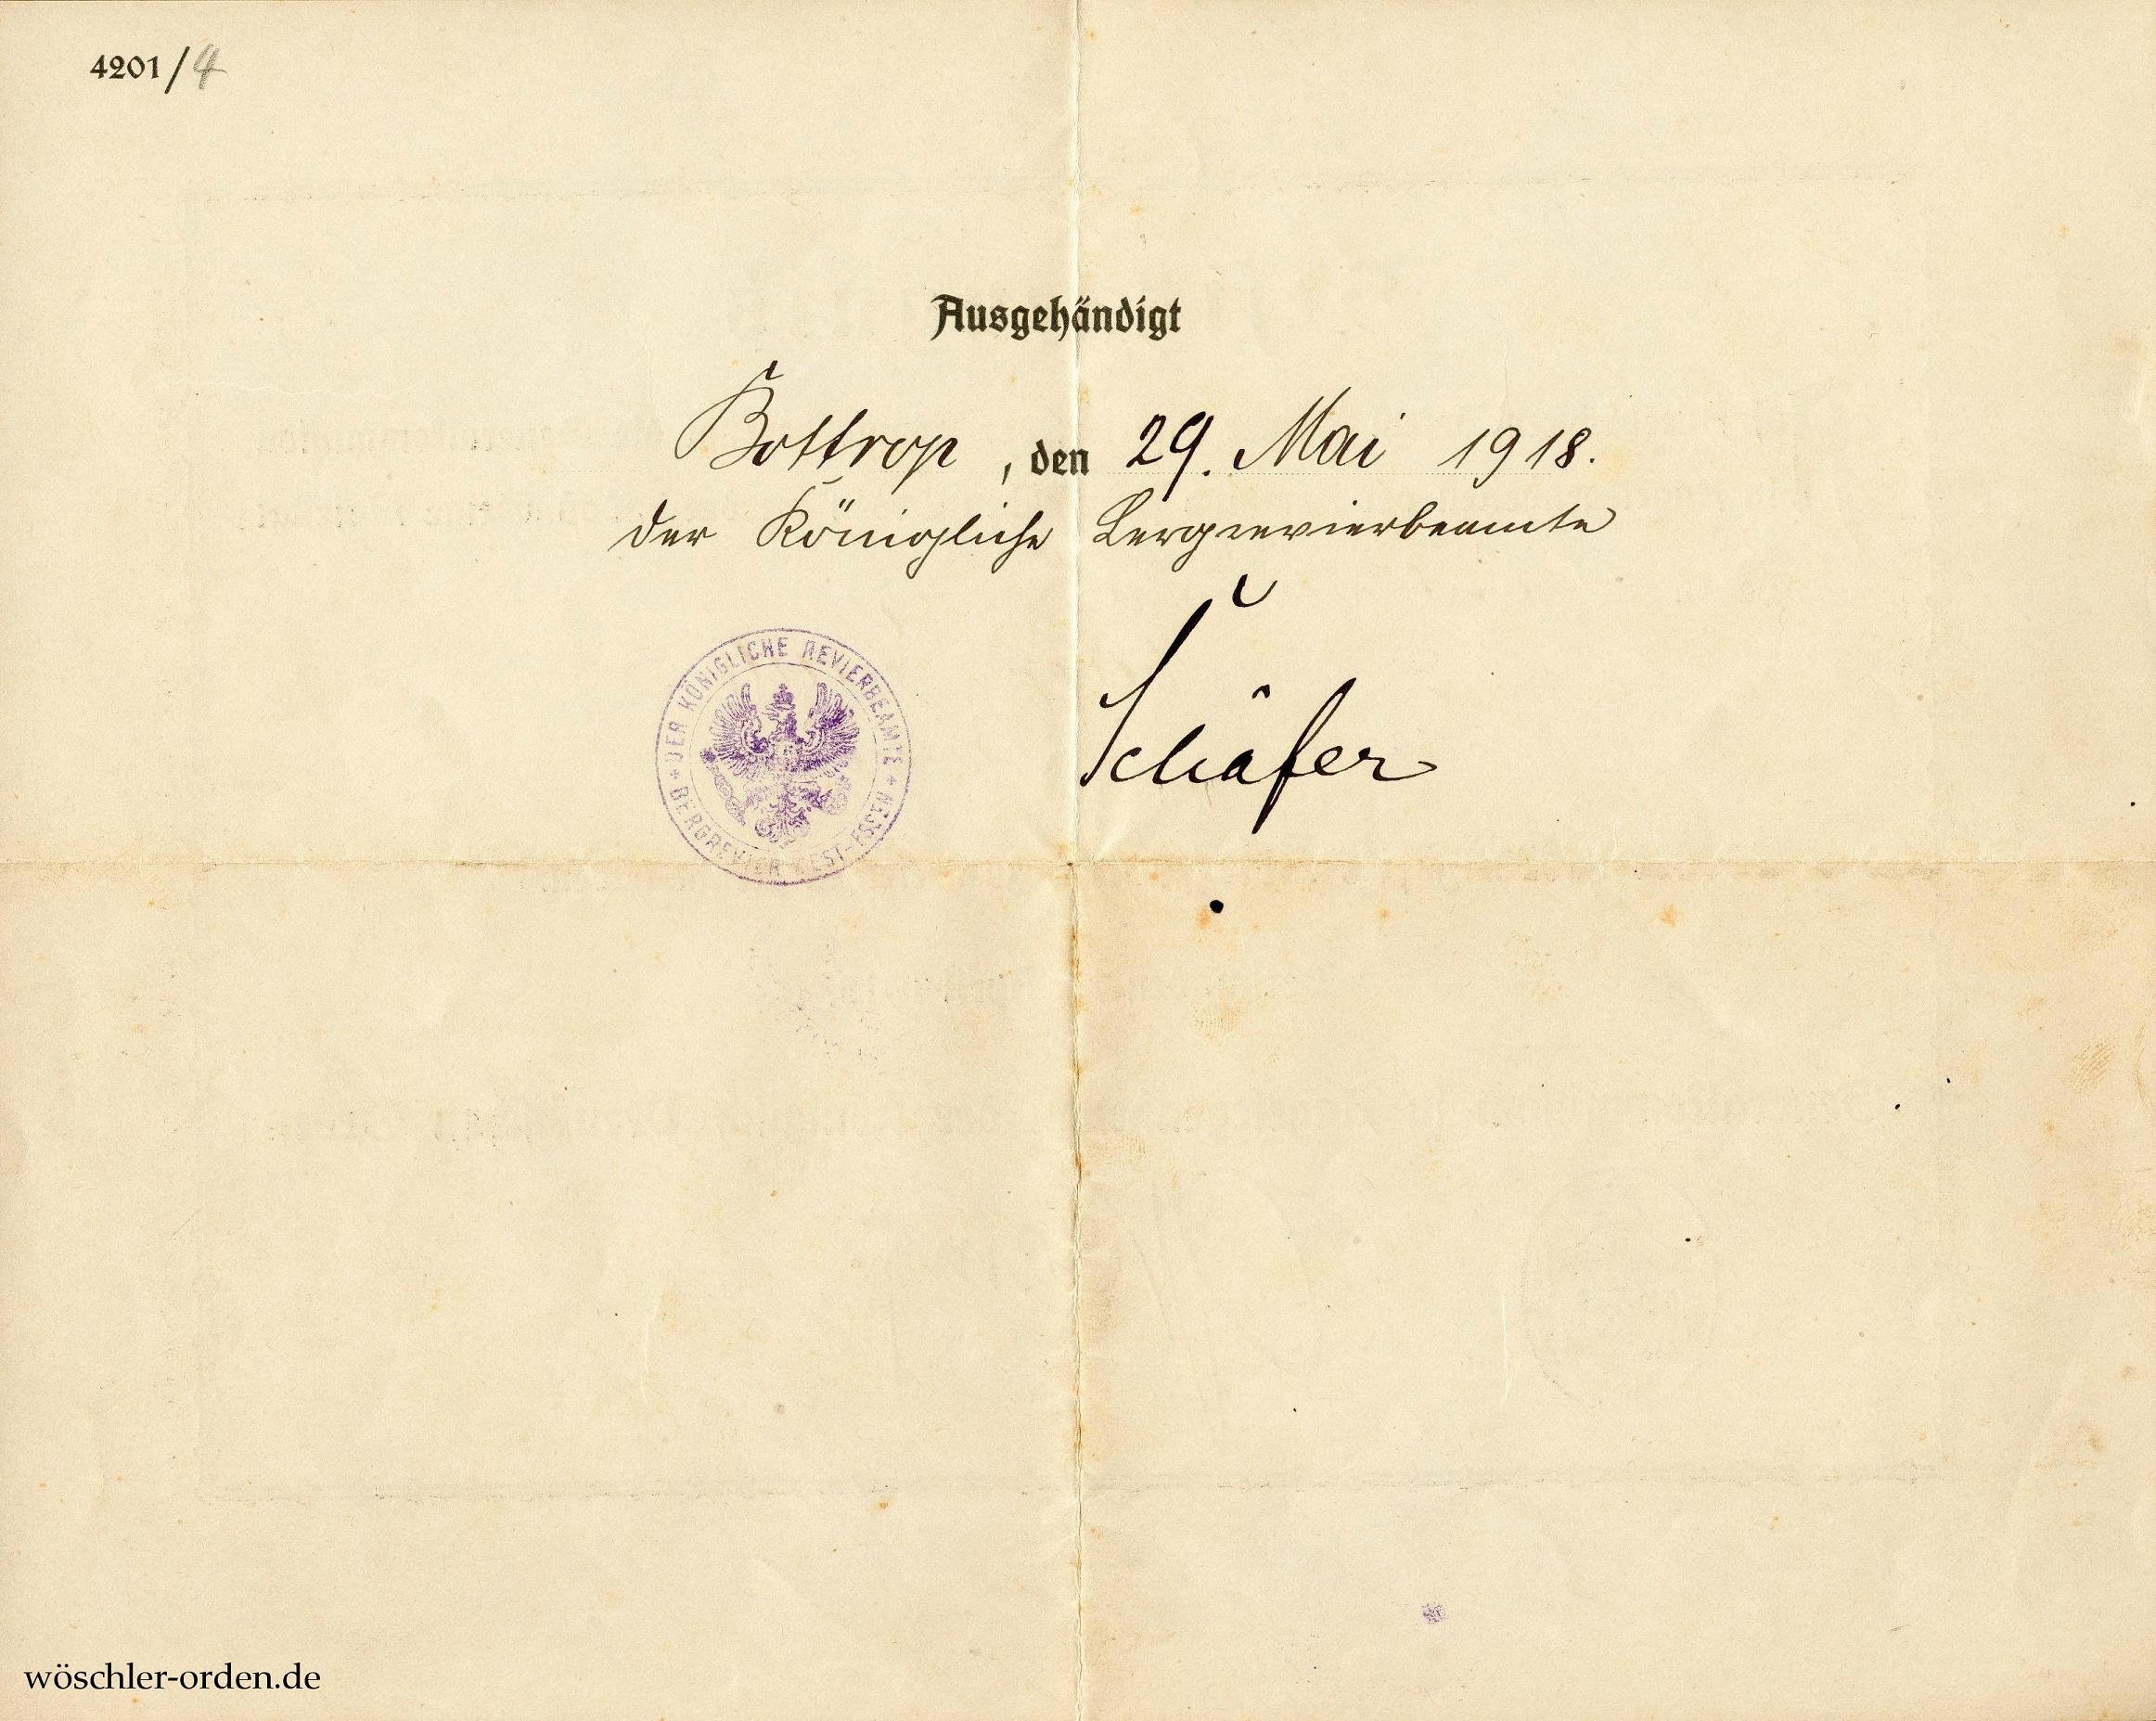 4201/4
Ausgehändigt
Bottrop, den 29. Mai 1918.
Der Königliche Bergrevierbeamte
Schäfer
DER KÖNIGLICHE REVIERBEAMTE
BERGREVIER WEST-ESSEN
wöschler-orden.de